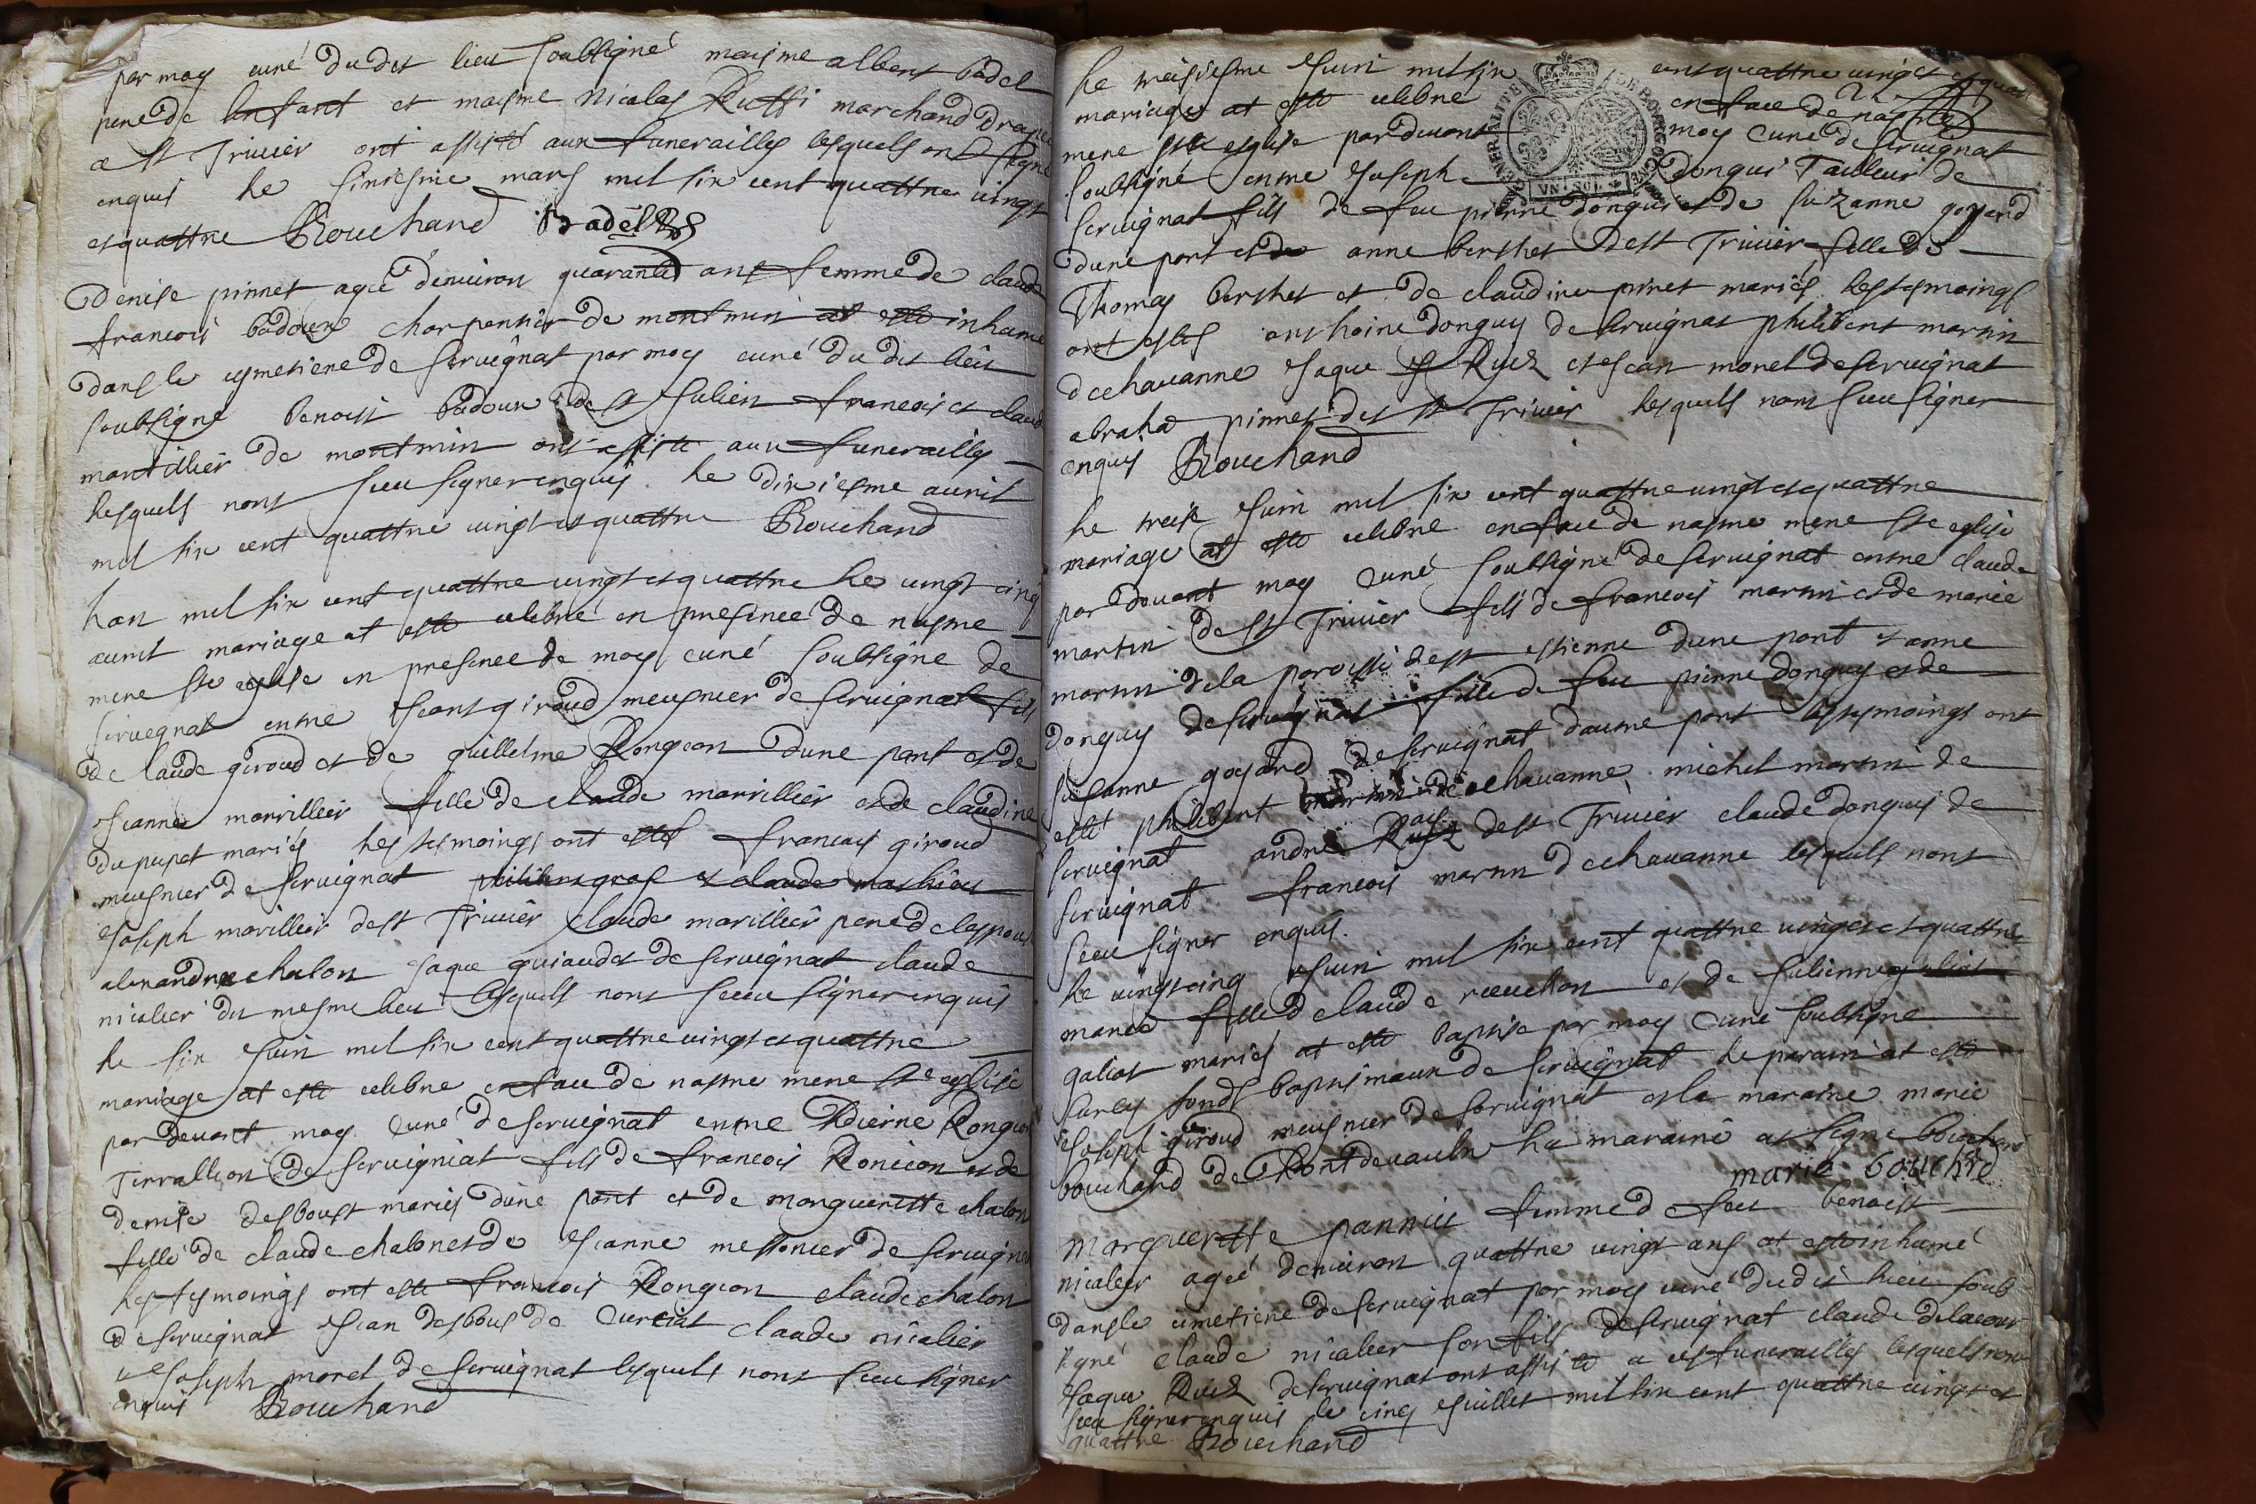 par moy curé du dit lieu soubsigné maisme albert badel
pere de lenfant et maisme nicolas Ruffi marchand drapie
a st Trivier ont assisté aux funerailles lesquels ont signe
enquis le sixiesme mars mil six cent quattre vingt
et quattre Bouchard Badel
Denise pinnet agée denviron quarante ans femme de claude
francois badoux charpentier de montmin at esté inhumé
dans le cymetiere de servignat par moy curé du dit lieu
soubsigné benoist badoux de st Julien francois et claud
mantillier de montmin ont assisté aux funerailles
lesquels nont sceu signer enquis le dixiesme avril
mil six cent quattre vingt et quattre Bouchard
Lan mil six cent quattre vingt et quattre le vingt cinq
avril mariage at esté celebré en presence de nostre
mere ste eglise en presence de moy curé soubsigne de
servegnat entre Jean giroud meusnier de servignat fils
de claude giroud et de guillelme Rongeon dune part et de
Jeanne marvillier fille de claude marvillier et de claudine
du pupet mariés les tesmoings ont estes francois giroud
meusnier de servignat philibert gras et claude mathieu
Joseph marillier de st Trivier claude marillier pere de lespouse
alexandre chalon Jaque guiaudet de servignat claude
nicalier du mesme lieu lesquels nont sceu signer enquis
le six Juin mil six cent quattre vingt et quattre
mariage at esté celebré en face de nostre mere ste eglise
par devant moy curé de servignat entre Pierre Rongeon
Terrallion de servigniat fils de francois Ronion et de
denise desboust mariés dune part et de marguerette chalon
fille de claude chalon et de Jeanne messonier de servignat
les tesmoings ont esté francois Rongeon claude chalon
de servignat Jean desbous de Curciat claude nicalier
et Joseph morel de servignat lesquels nont sceu signer
enquis Bouchard
Le treisiesme Juin mil six cent quattre vingt et quat
mariage at esté celebré en face de nostre
mere ste eglise par devant moy curé de servignat
soubsigné entre Joseph donqui Tailleur de
servignat fils de feu pierre donqui et de suzanne goyard
dune part et de anne berthet de st Trivier fille de
Thomas berthet et de claudine pinet mariés les tesmoings
ont estés anthoine donguy de servignat philibert martin
de chavanne Jaque Ruez et Jean morel de servignat
abraha pinnet de st Trivier lesquels nont sceu signer
enquis Bouchard
Le treise Juin mil six cent quattre vingt et quattre
mariage at esté celebré en face de nostre mere ste eglise
par devant moy curé soubsigné de servignat entre claude
martin de st Trivier fils de francois martin et de marie
martin de la paroisse de st estienne dune part et anne
donguy de servignat fille de feu pierre donguy et de
susanne goyard de servignat dautre part les tesmoings ont
esté philibert martin de chavanne michel martin de
servignat andre Ruez de st Trivier claude donguy de
servignat francois martin de chavanne lesquels nont
sceu signer enquis.
Le vingt cinq Juin mil six cent quattre vingt et quattre
marie fille de claude reuchon et de Julienne
galiat mariés at esté baptise par moy curé soubsigne
sur les fonds baptismaux de servignat le parain at esté
Joseph giroud meusnier de servignat et la maraine marie
bouchard de Pont de vaulx la maraine at signe bouchard
marie bouchard
marguerette pannier femme de feu benoist
nicalier agée denviron quattre vingt ans at esté inhumé
dans le cimetiere de servignat par moy curé du dit lieu soub
signé claude nicalier son fils de servignat claude delacour
Jaque Ruez de servignat ont assisté a ses funerailles lesquels nont
sceu signer enquis le cinq Juillet mil six cent quattre vingt et
quattre Bouchard
GENERALITE DE BOURGOGNE
UN SOL